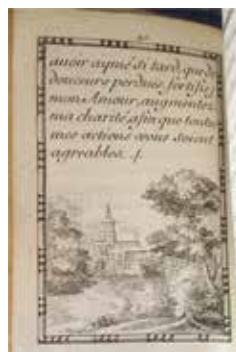 auoir aymé si tard, que de
douceurs perdues, fortifiez
mon Amour, augmentez
ma charité, afin que toutes
mes actions vous soient
agreables.